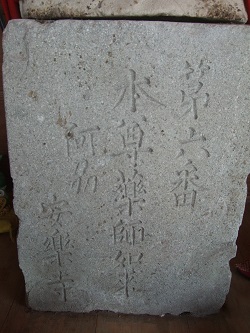 第六番
本尊藥師如来
阿州
安樂寺